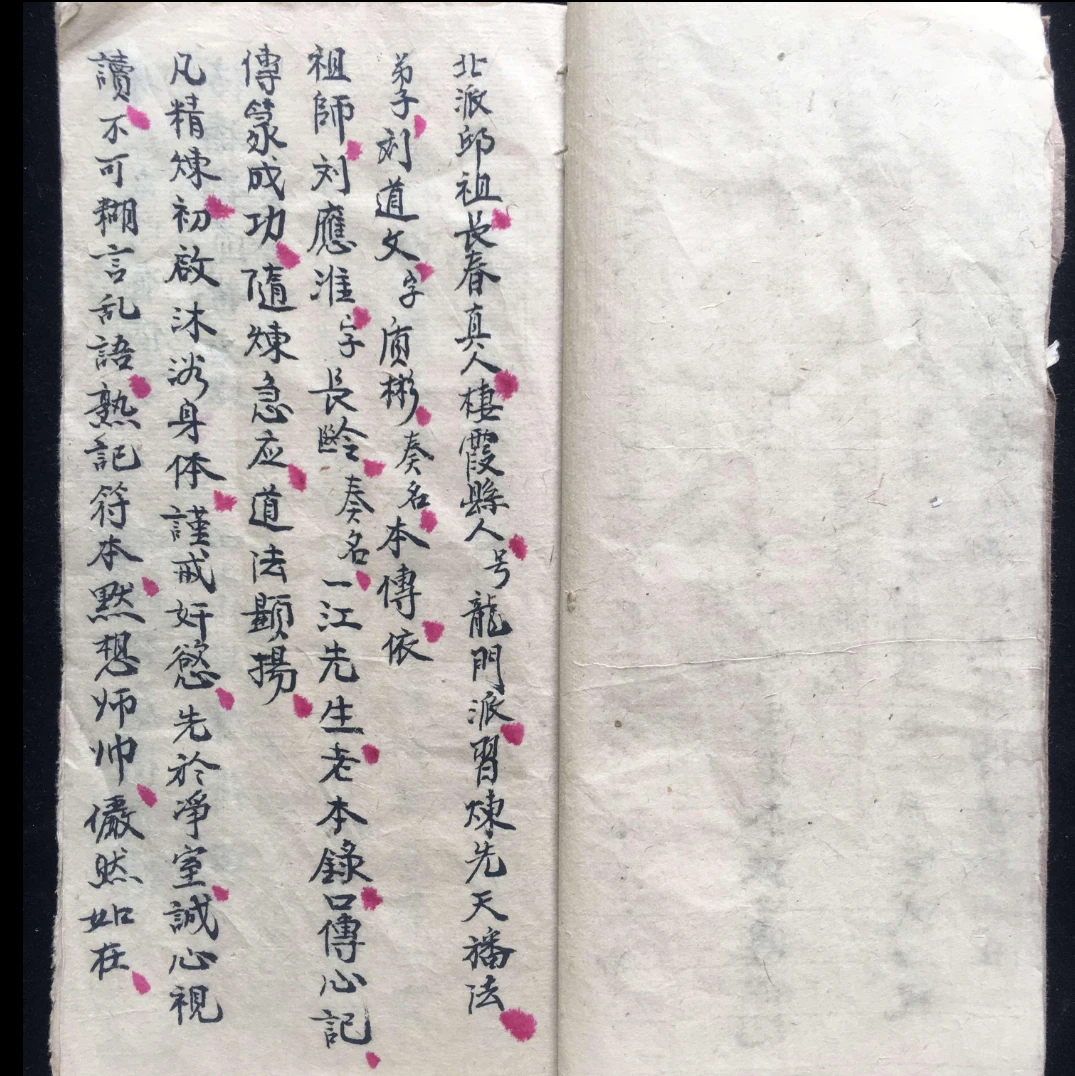 北派邱祖長春真人棲霞縣人号龍門派習煉先天播法
弟子刘道文字貭彬奏名本傳依
祖師刘應淮字長齡奏名一江先生老本錄口傳心記
傳篆成功隨煉急应道法顯揚
凡精煉初啟沐浴身体謹戒奸慾先於淨室誠心視
讀不可糊言乱語熟記符本黙想师帅儼然如在